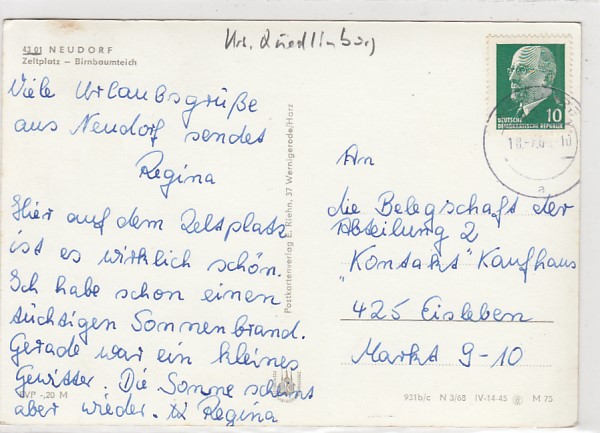 Krs. Quedlinburg
43 01 NEUDORF
Zeltplatz – Birnbaumteich
Viele Urlaubsgrüße
aus Neudorf sendet
Regina
Hier auf dem Zeltplatz
ist es wirklich schön.
Ich habe schon einen
tüchtigen Sonnenbrand.
Gerade war ein kleines
Gewitter. Die Sonne scheint
aber wieder. Regina
VP -,20 M
Postkartenverlag E. Riehn, 37 Wernigerode/Harz
10
DEUTSCHE
DEMOKRATISCHE REPUBLIK
a
An
die Belegschaft der
Abteilung 2
"Kontakt" Kaufhaus
425 Eisleben
Markt 9-10
931b/c N 3/68 IV-14-45 M 75